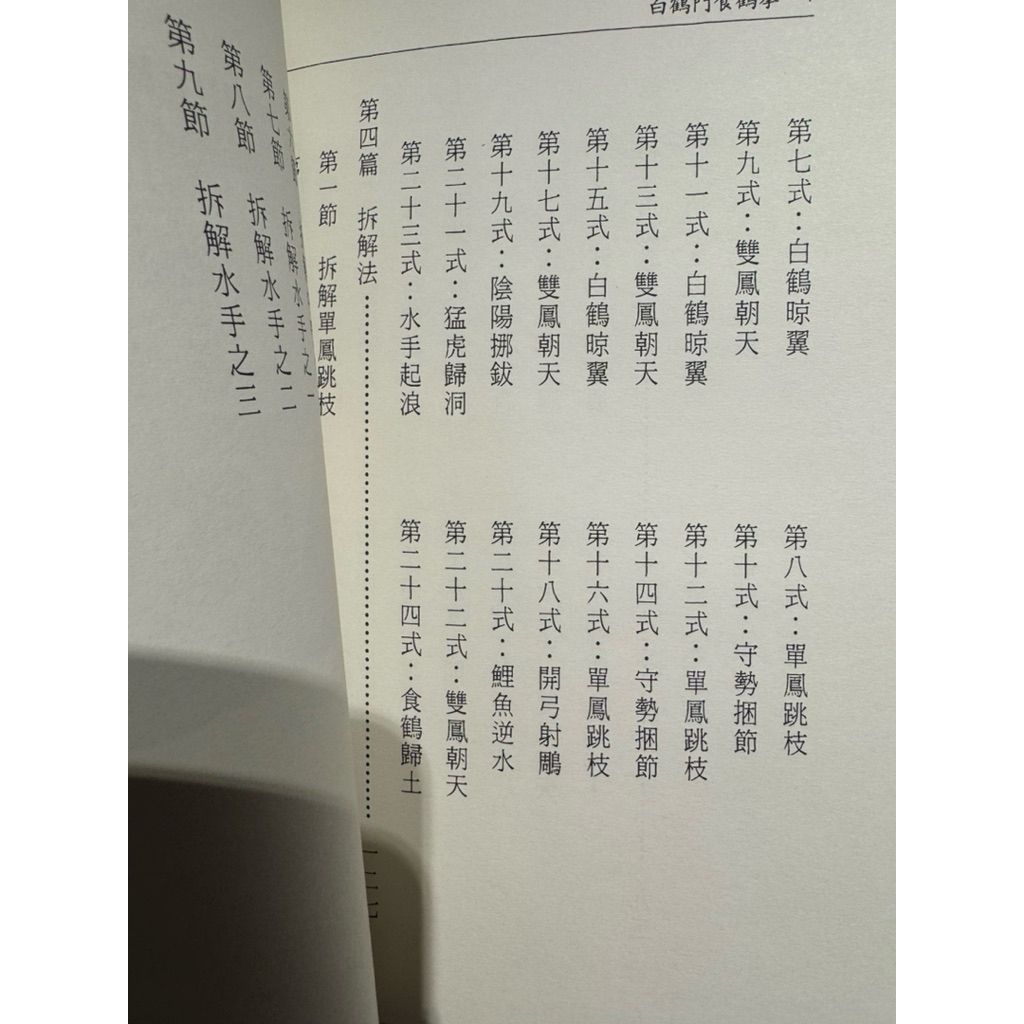 白鶴門食鶴拳
第七式：白鶴晾翼
第八式：單鳳跳枝
第九式：雙鳳朝天
第十式：守勢捆節
第十一式：白鶴晾翼
第十二式：單鳳跳枝
第十三式：雙鳳朝天
第十四式：守勢捆節
第十五式：白鶴晾翼
第十六式：單鳳跳枝
第十七式：雙鳳朝天
第十八式：開弓射鵰
第十九式：陰陽挪鈸
第二十式：鯉魚逆水
第二十一式：猛虎歸洞
第二十二式：雙鳳朝天
第二十三式：水手起浪
第二十四式：食鶴歸土
第四篇 拆解法
第一節 拆解單鳳跳枝
拆解水手之一
第七節 拆解水手之二
第八節
第九節 拆解水手之三